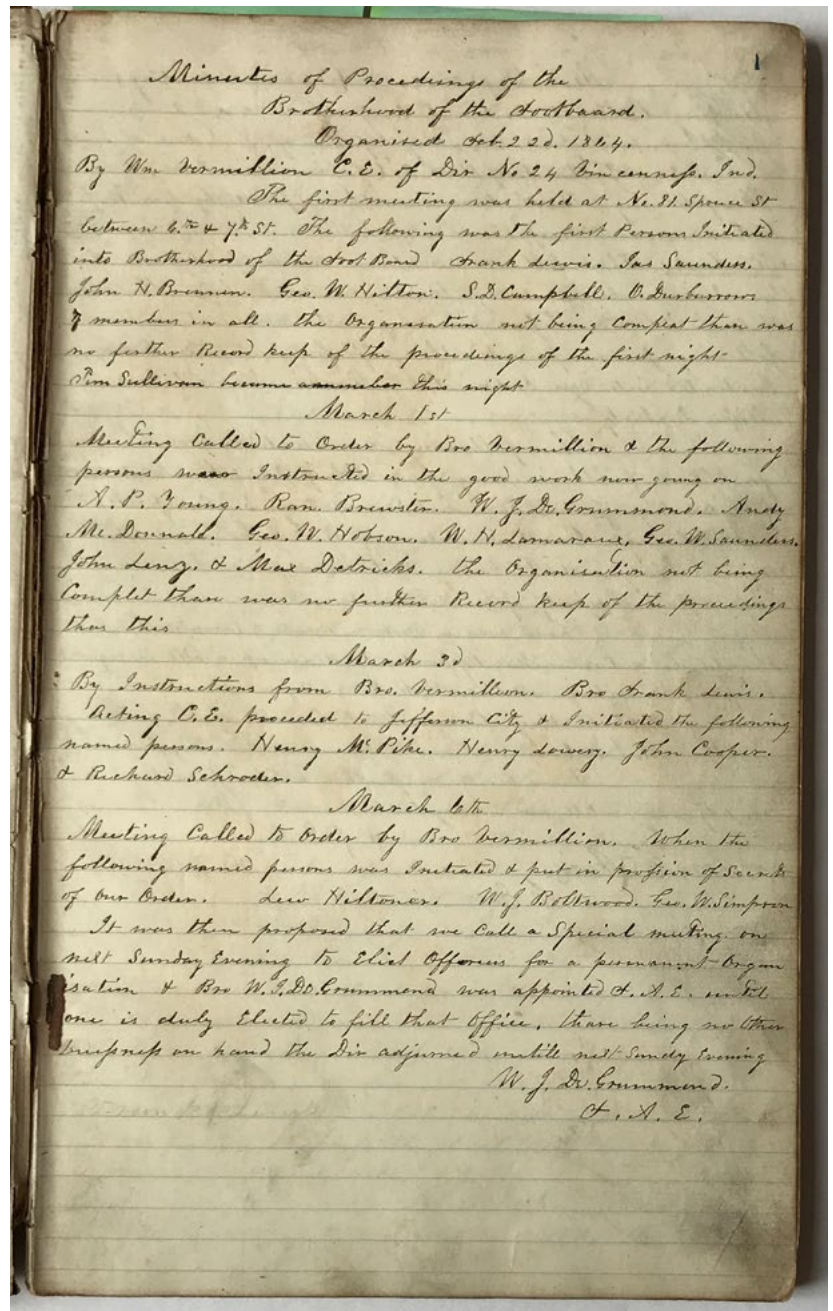 1
Minutes of Procedings of the
Brotherhood of the Footbaard.
Organised Feb. 22d. 1864.
By Wm Vermillion C.E. of Div No 24 Vincenness. Ind.
The first meeting was held at No. 81. Spruce St
between 6.th & 7.th St. The following was the first Persons Initiated
into Brotherhood of the Foot Board Frank Lewis. Jas Saunders.
John H. Brennen. Geo. W. Hilton. S. D. Campbell. O. Durburrows
7 members in all. the Organisation not being Compleat thare was
no further Record keep of the proceedings of the first night
Tim Sullivan became a member this night
March 1st
Meeting Called to Order by Bro Vermillion & the following
persons was Instructed in the good work now going on
A. P. Young. Ran. Brewster. W. J. De Grummond. Andy
Mc. Donnald. Geo. W. Hobson. W. H. Lamaraux, Geo. W. Saunders.
John Lenz. & Max Detricks. the Organisation not being
Complet thare was no further Record keep of the proceedings
thas this
March 3d
By Instructions from Bro. Vermillion. Bro Frank Lewis.
Acting C.E. proceded to Jefferson City & Initiated the following
named persons. Henry Mc. Pike. Henry Lowery. John Cooper.
& Richard Schroder.
March 6th
Meeting Called to Order by Bro Vermillion. When the
following named persons was Initiated & put in possion of Secrets
of our Order. Lew Hiltoner. W. J. Boltwood. Geo. W. Simpson
It was then proposed that we Call a Special meeting on
next Sunday Evening to Elict Officeus for a permanant Organ
isation & Bro W. J. De Grummond was appointed F. A. E. untill
one is duly Elected to fill that Office, thare being no Other
buissness on hand the Div adjurned untill next Sundy Evening
W. J. De Grummond.
F. A. E.